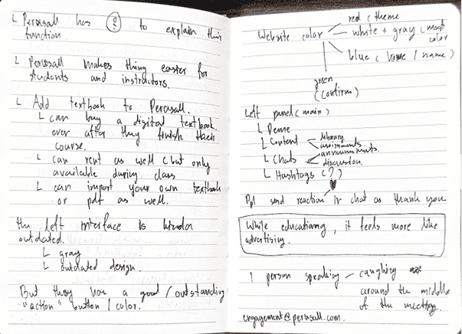 L Perusall has ? to explain this
function
L Perusall makes thing easier for
students and instructors.
L Add textbook to Perusall.
L can buy a digital textbook
over after they finish their
course.
L can rent as well (but only
available during class
L can import your own textbook
or pdf as well.
the left interface is kinda
outdated.
L gray
L outdated design.
But they have a good / outstanding
"action" button / color.
Website color
red (theme
white + gray (main
color
blue (home / name)
green
(confirm)
Left panel (main)
L
L Content
library
assignments
announcements
L Chats
discussion
L Hashtags (?)
Ppl send reaction in chat as thank you
While educating, it feels more like
advertising.
1 person speaking
coughing
around the middle
of the meeting.
engagement@perusall.com.